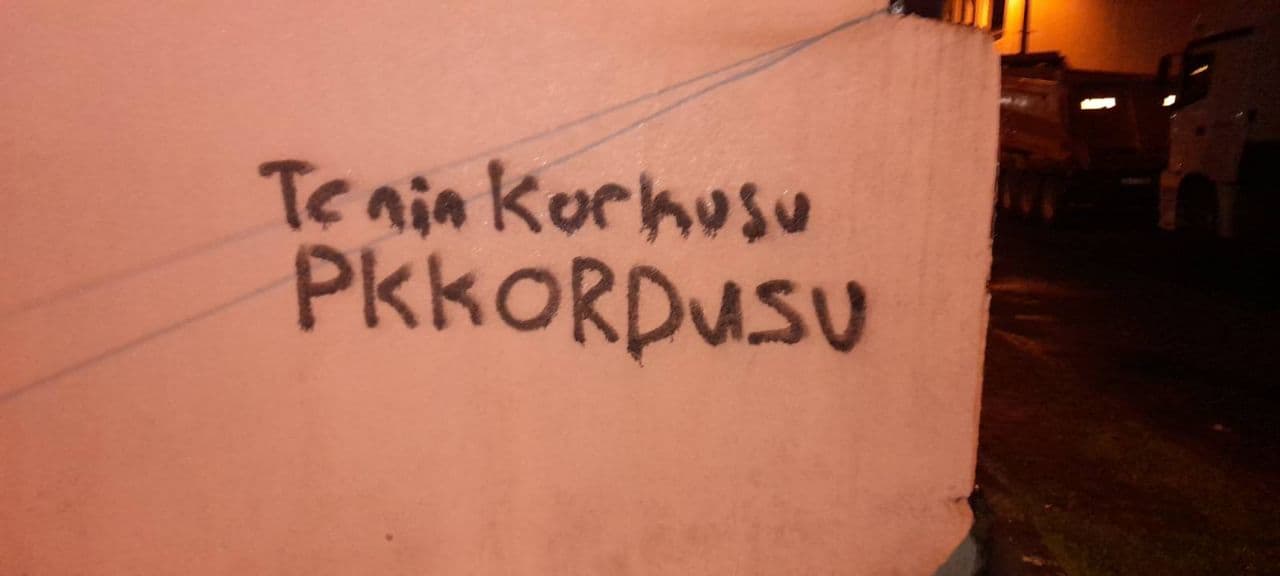 Tc nin Korkusu
PKKORDUSU